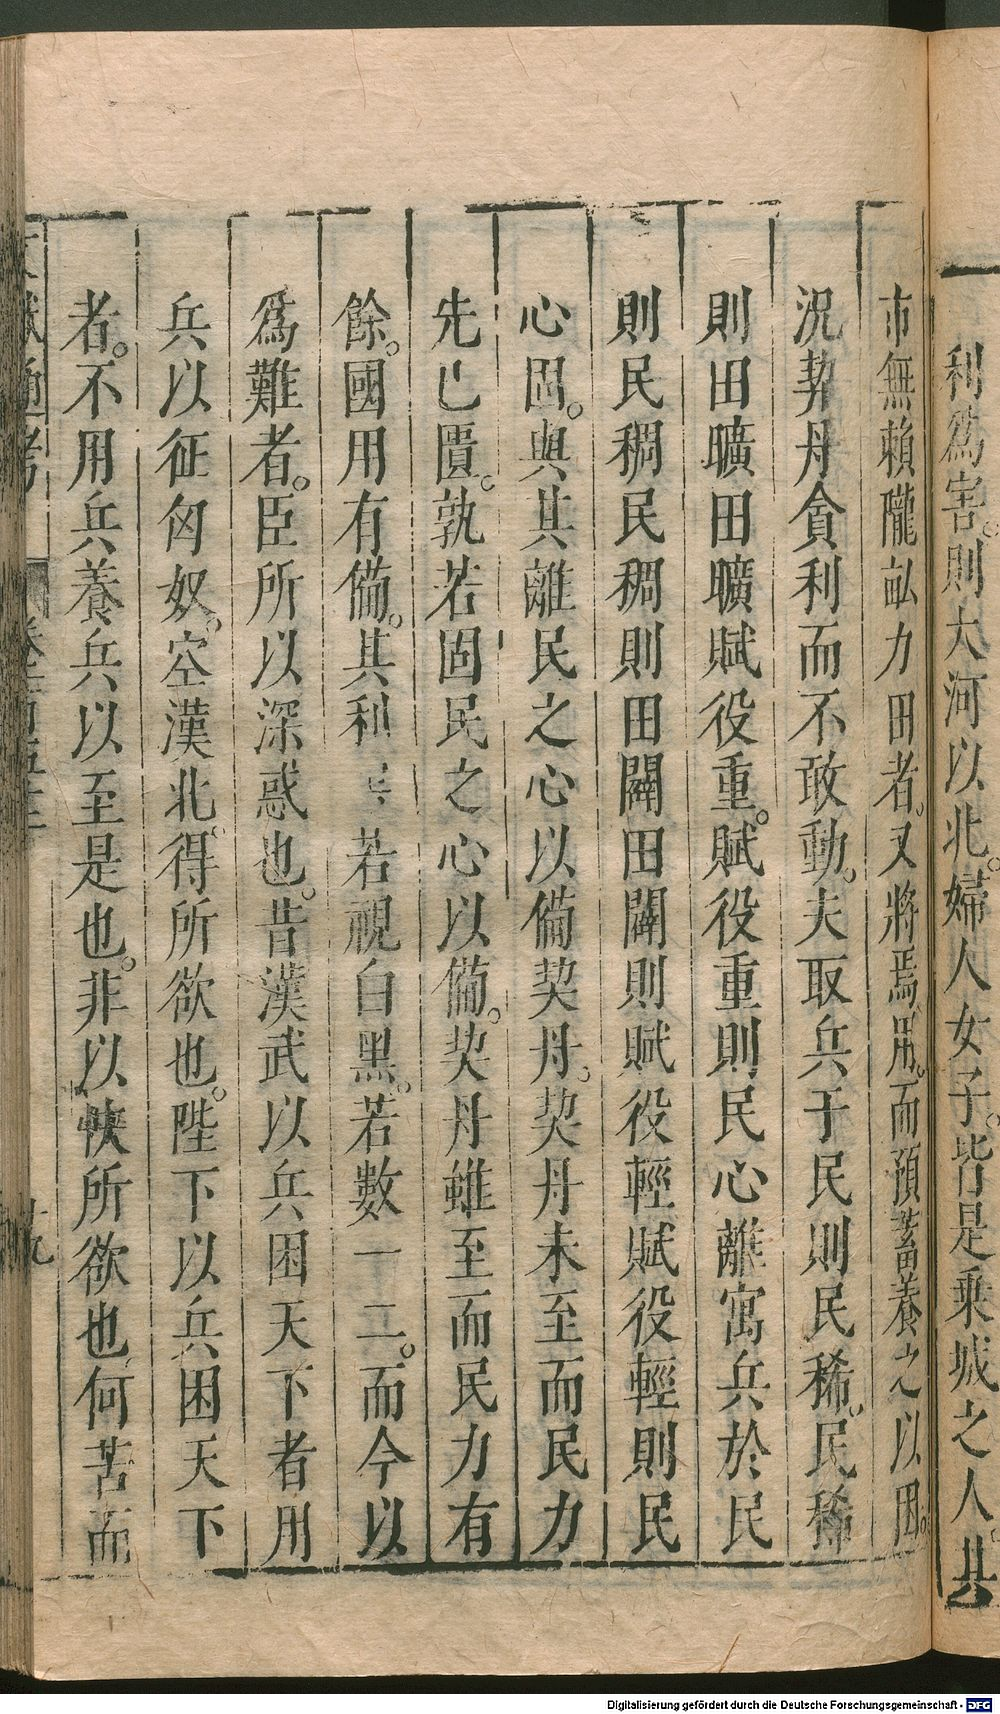 利爲害則大河以北婦人女子皆是乗城之人其
市無賴隴畝力田者又將焉用而預蓄養之以困
況契丹貪利而不敢動夫取兵于民則民稀民稀
則田曠田曠賦役重賦役重則民心離寓兵於民
則民稠民稠則田闢田闢則賦役輕賦役輕則民
心固與其離民之心以備契丹契丹未至而民力
先已匱孰若固民之心以備契丹雖至而民力有
餘國用有備其利 若視白黑若數一二而今以
爲難者臣所以深惑也昔漢武以兵困天下者用
兵以征匈奴空漠北得所欲也陛下以兵困天下
者不用兵養兵以至是也非以快所欲也何苦而
文獻通考 卷一百五十三 十九
Digitalisierung gefördert durch die Deutsche Forschungsgemeinschaft - DFG